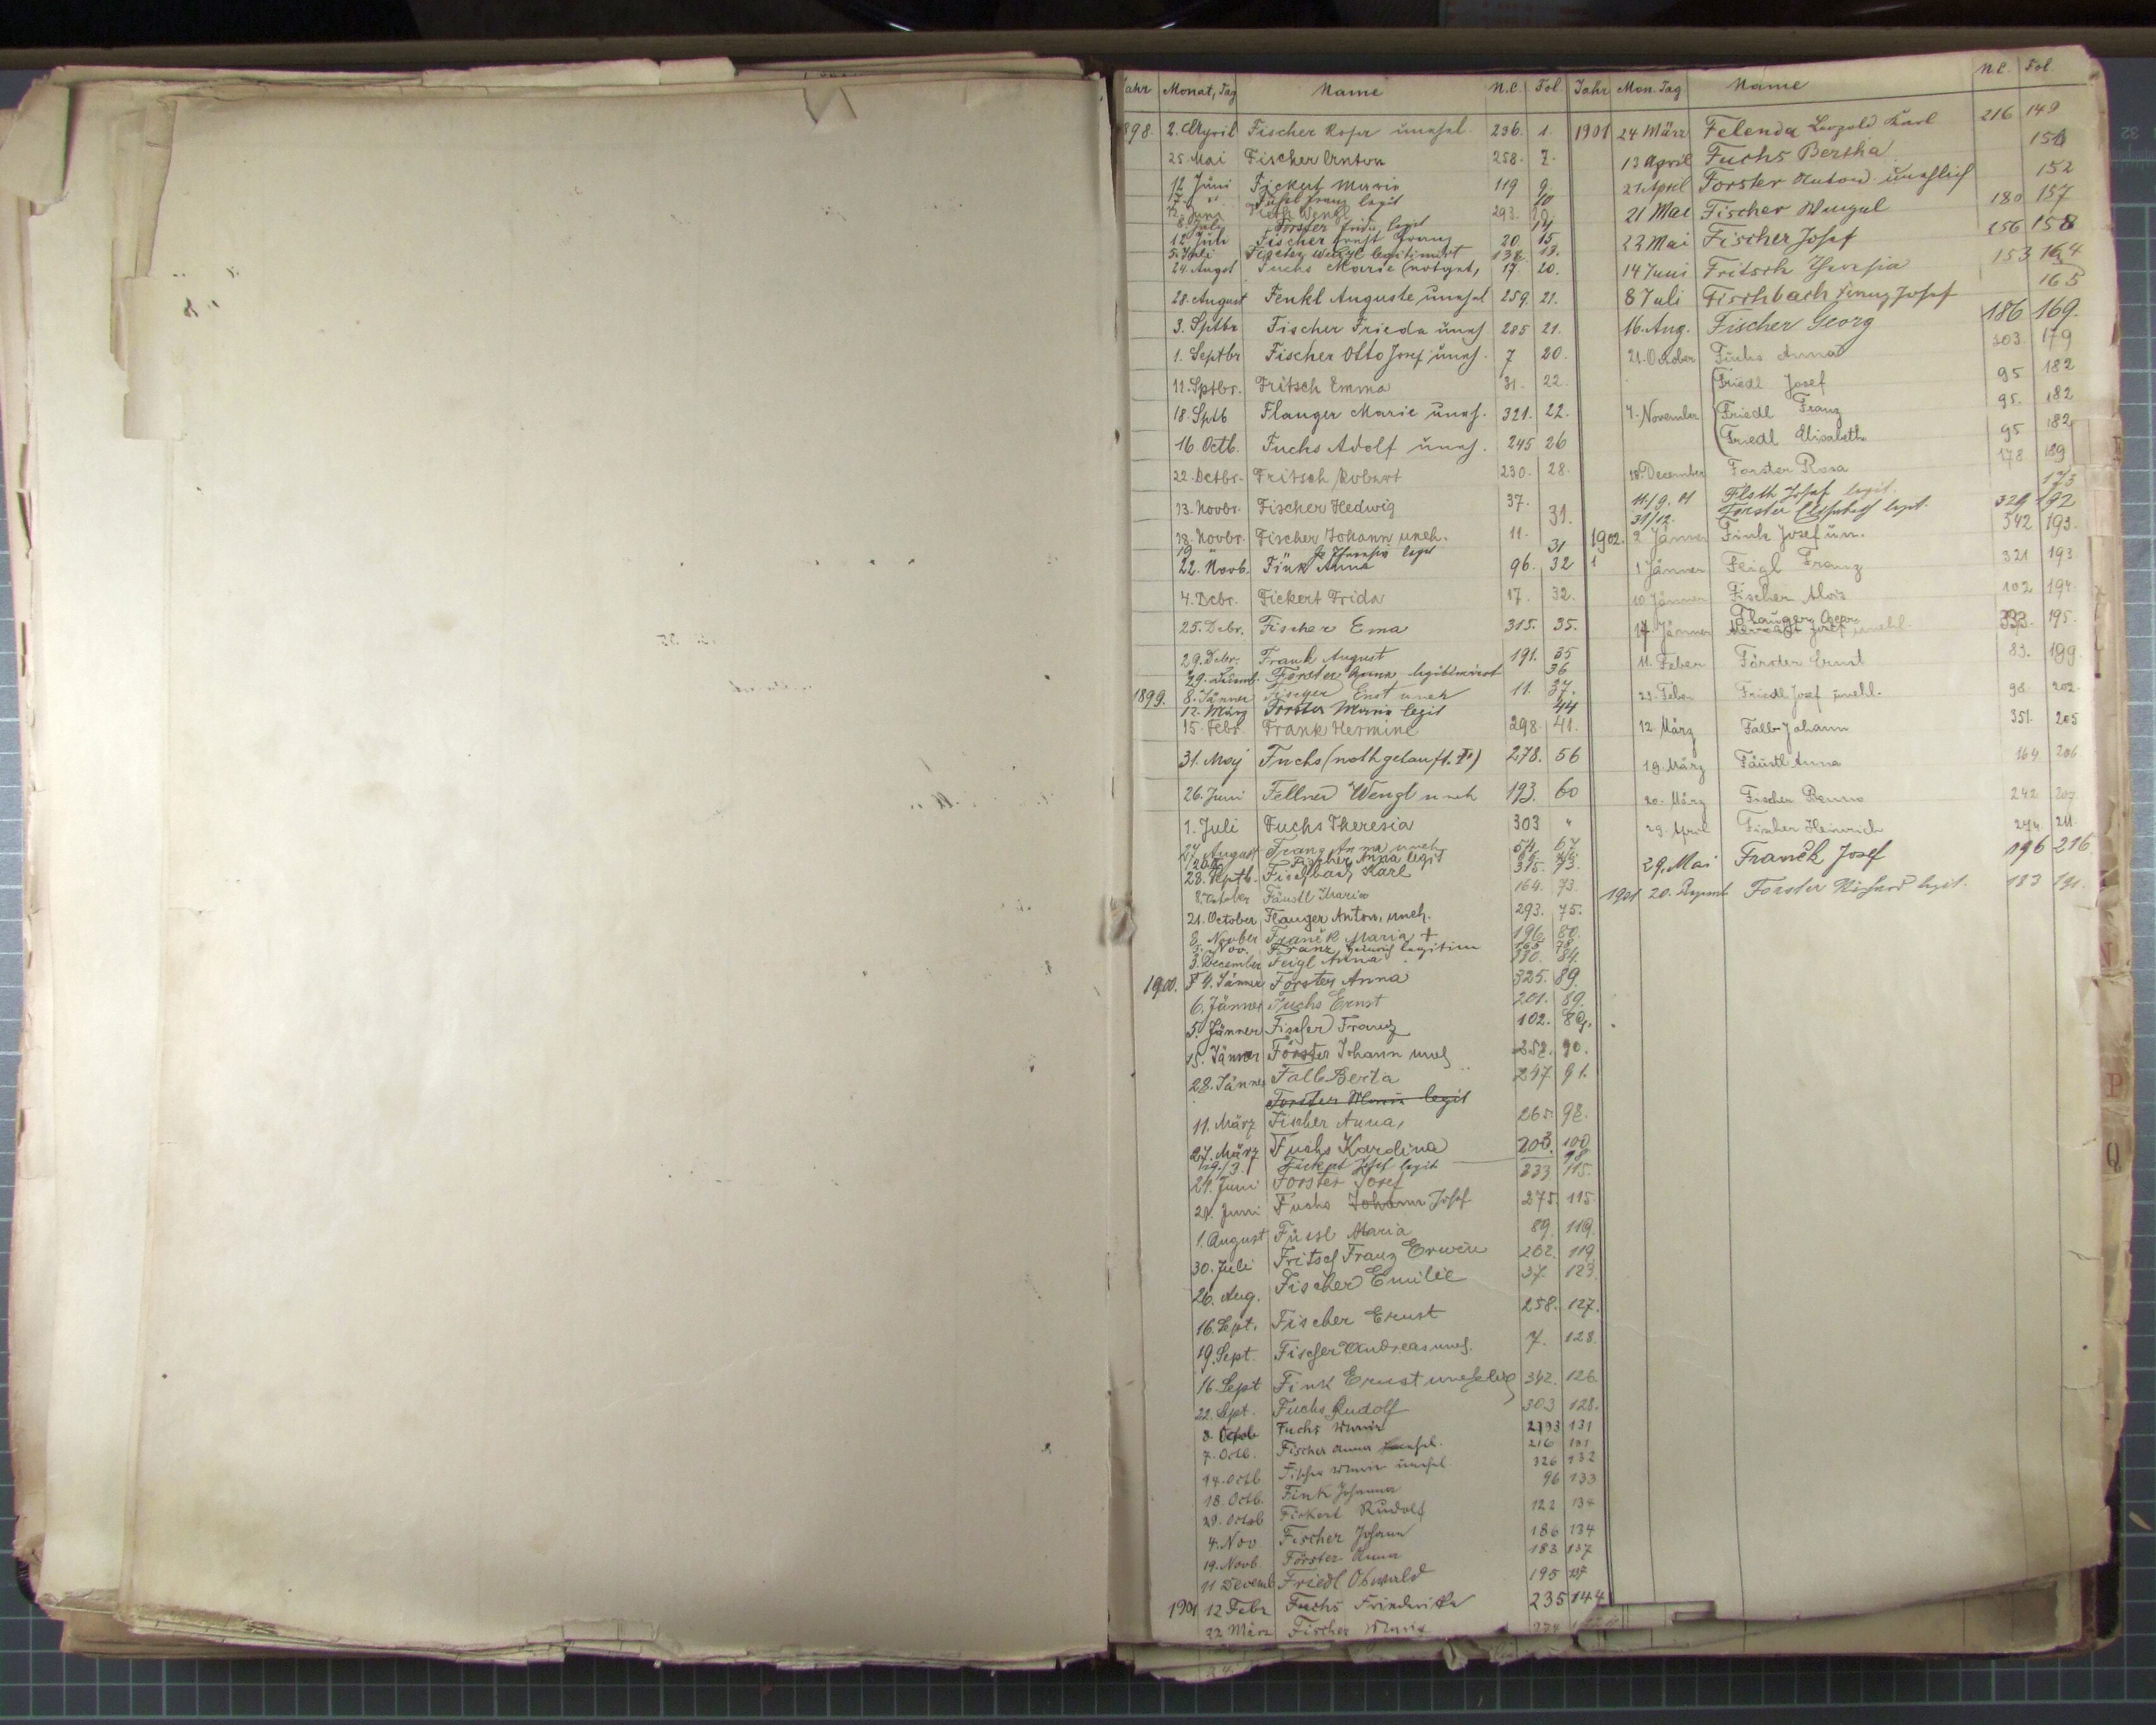 Jahr Monat, Tag Name N.C. Fol
1898. 2. April Fischer Rosa unehel. 236. 1.
25. Mai Fischer Anton 258. 7.
12 Juni Fickert Marie 119 9
17. " Füssl Franz legit 10
12. Juni Wenzl 293. 10.
8. Juli Forster legit 14
12. Juli Fischer Ernst Franz 20 15
5. Juli Fischer Wenzl legitimirt 138 13.
24. Augst Fuchs Marie (notget, 17. 20.
28. August Fenkl Auguste unehel 259. 21.
3. Sptbr Fischer Frieda uneh 285 21.
1. Septbr Fischer Otto Josef uneh. 7 20.
11. Sptbr. Fritsch Emma 31. 22.
18. Sptb Flauger Marie uneh. 321. 22.
16. Octb. Fuchs Adolf uneh. 245 26
22. Octbr. Fritsch Robert 230. 28.
13. Novbr. Fischer Hedwig 37. 31.
18. Novbr. Fischer Johann uneh. 11.
19 " Theresia legit 31
22. Novb. Fink Anna 96. 32
4. Dcbr. Fickert Frida 17. 32.
25. Dcbr. Fischer Ema 315. 35.
29. Debr. Frank August 191. 35
29. Decemb. Forster Anna legitimirt 36
1899. 8. Jänner Fischer Ernst uneh 11. 37.
12. März Forster Maria legit 44
15. Febr. Frank Hermine 298. 41.
31. Maj Fuchs (nothgetauft. †) 278. 56
26. Juni Fellner Wenzl uneh 193. 60
1. Juli Fuchs Theresia 303 "
27 August Franz Anna uneh 54. 67
Fischer Anna legit
28. Septb. Fischbach Karl 315. 73.
8. October Fäustl Maria 164. 73.
21. October Flauger Anton, uneh. 293. 75.
8. Novber Franěk Maria + 196 80.
Nov. Franz Heinrich legitim
3. December Feigl Anna 330. 84.
1900. 4. Jänner Forster Anna 325. 89.
6. Jänner Fuchs Ernst 201. 89.
5. Jänner Fischer Franz 102. 89.
15. Jänner Förster Johann uneh 258. 90.
28. Jänner Falb Berta 247 91.
Forster Maria legit
11. März Fischer Anna, 265. 98.
27. März Fuchs Karolina 203. 100
29./3. Fickert Josef legit 98
24. Juni Forster Josef 233 115.
24. Juni Fuchs Johann Josef 275. 115.
1. August Füssl Maria 89. 119.
30. Juli Fritsch Franz Erwin 262. 119.
26. Aug. Fischer Emilie 37. 123.
16. Sept. Fischer Ernst 258. 127.
19. Sept. Fischer Andreas uneh. 7. 128.
16. Sept Fink Ernst unehelig 342. 126.
22. Sept. Fuchs Rudolf 303 128.
8 Octob Fuchs Marie 293 131
7. Octb. Fischer Anna 216 131
14. Octb Fischer Marie unehel 326 132
18. Octb. Fink Johanna 96 133
29. Octob Fickert Rudolf 122 134
4. Nov. Fischer Johann 186 134
19. Novb. Förster Anna 183 137
11 Decemb Friedl Oswald 195
1901 12 Febr Fuchs Friederike 235 144
22 März Fischer Marie 274
Jahr Mon. Tag Name N.C. Fol.
1901 24 März Felenda Leopold Karl 216 149
13 April Fuchs Bertha 150
21 April Forster Antonie unehlich 152
21 Mai Fischer Wenzel 180 157
22 Mai Fischer Josef 156 158
14 Juni Fritsch Theresia 153 164
8 Juli Fischbach Franz Josef 165
16. Aug. Fischer Georg 186 169.
21. October Fuchs Anna 303. 179
Friedl Josef 95 182
7. November Friedl Franz 95. 182
Friedl Elisabeth 95 182
18. December Forster Rosa 178 189
11./9. 01 Flath Josef legit. 175
31/12. Forster Elisabeth legit. 329 192
1902. 2 Jänner Fink Josef un. 342 193.
1 Jänner Feigl Franz 321 193
10 Jänner Fischer Alois 102 194.
14. Jänner Flauger Josef unehl. 333. 195.
11. Feber Förster Ernst 83. 199.
23. Feber Friedl Josef unehl. 98 202.
12. März Falb Johann 351. 205
19. März Fäustl Anna 164 206
20. März Fischer Benno 242 207
29. April Fischer Heinrich 274. 211.
29. Mai Franěk Josef 196 216
1901 20. Forster Richard legit. 183 191.
N
P
Q